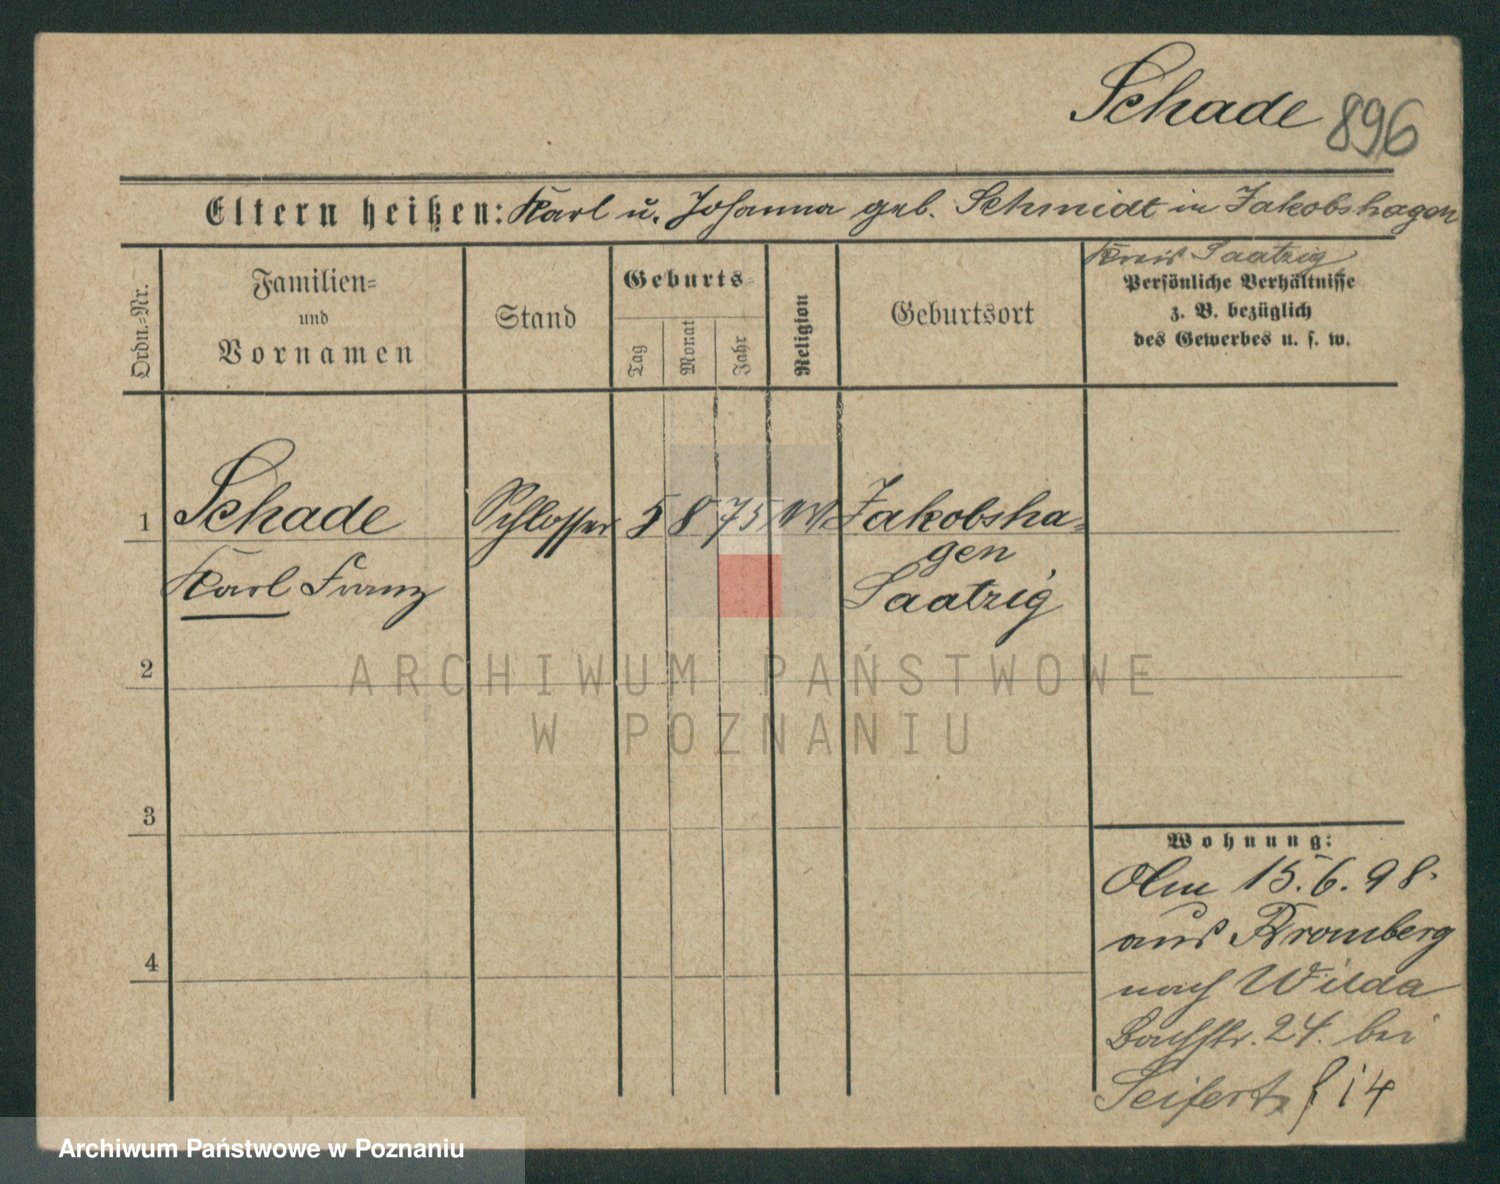 Schade 896
Eltern heißen: Karl u. Johanna geb. Schmidt in Jakobshagen
Kreis Saatzig
Ordn.-Nr.
Familien-
und
Vornamen
Stand
Geburts-
Tag
Monat
Jahr
Religion
Geburtsort
Persönliche Verhältnisse
z. B. bezüglich
des Gewerbes u. s. w.
1 Schade Schlosser 5 8 75 Jakobsha-
gen
Karl Franz Saatzig
2
ARCHIWUM PAŃSTWOWE
W POZNANIU
3
Wohnung:
15.6.98.
aus Bromberg
nach Wilda
Bachstr. 24. bei
4
Seifert
Archiwum Państwowe w Poznaniu